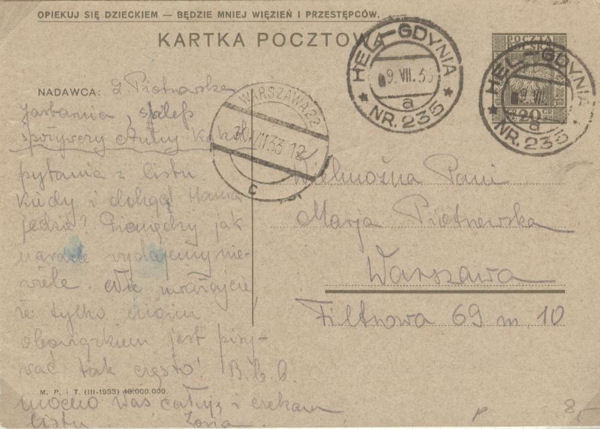 OPIEKUJ SIĘ DZIECKIEM — BĘDZIE MNIEJ WIĘZIEŃ I PRZESTĘPCÓW.
KARTKA POCZTOWA
POCZTA
HEL-GDYNIA
9. VII. 33
a
NR. 235
HEL-GDYNIA
9. VII.
20
a
NR. 235
WARSZAWA 22
VII 33 12
c
NADAWCA: Z Piotrowska
Jastarnia, sklep
spożywczy Anny
pytania z listu
kiedy i dokąd Hania
jedzie? Pieniędzy jak
narazie wydajemy nie-
wiele. nie
że tylko moim
obowiązkiem jest pisy-
wać tak często! B.
mocno Was całuję i czekam
listu. Zosia
Wielmożna Pani
Marja Piotrowska
Warszawa
Filtrowa 69 m. 10
M. P. i T. (III-1933) 40.000.000.
8-